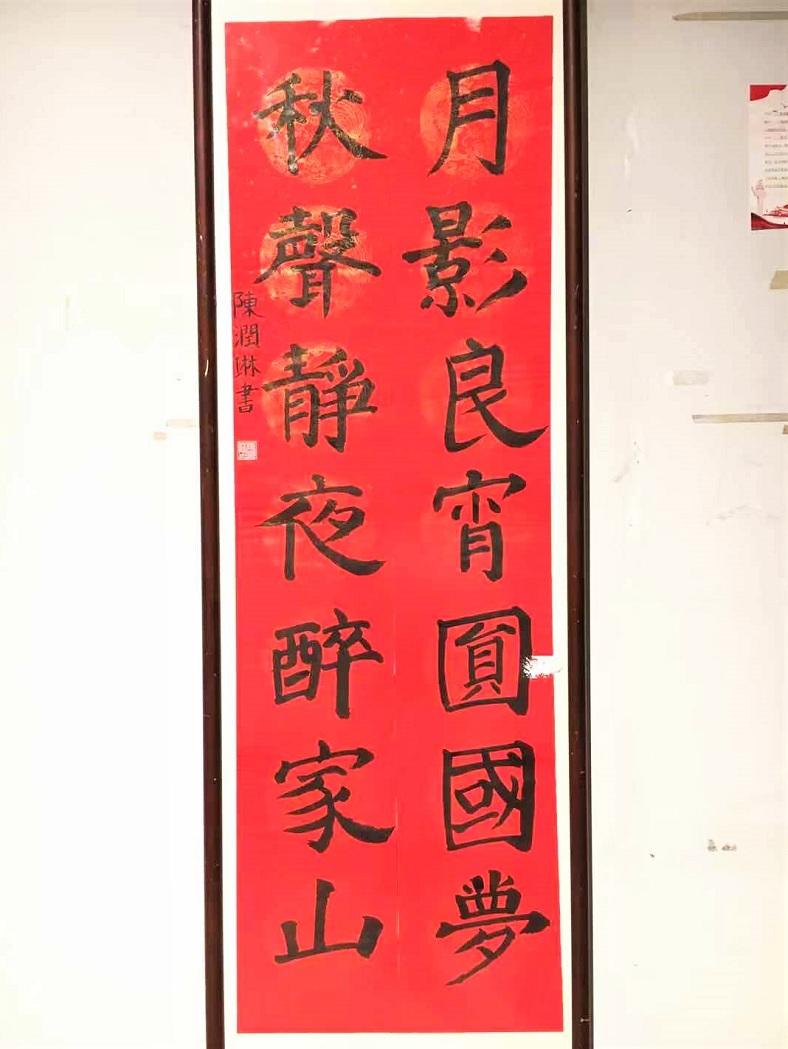 月影良宵圓國夢
秋聲靜夜醉家山
陳潤琳書